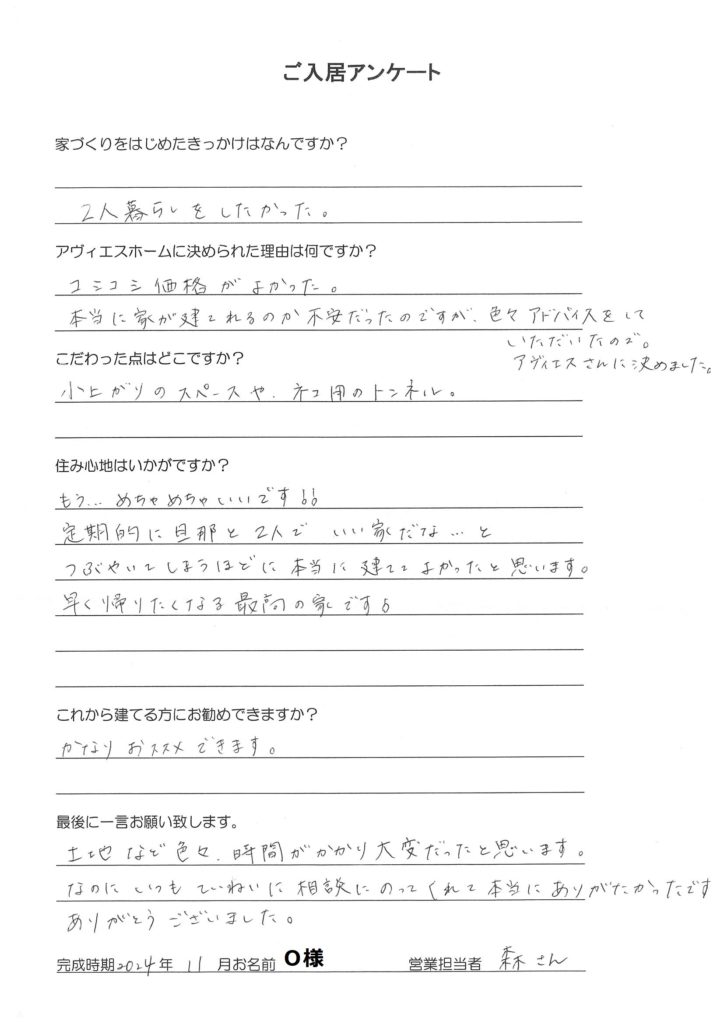 ご入居アンケート
家づくりをはじめたきっかけはなんですか？
2人暮らしをしたかった。
アヴィエスホームに決められた理由は何ですか？
コミコミ価格がよかった。
本当に家が建てれるのか不安だったのですが、色々アドバイスをして
いただいたので。
アヴィエスさんに決めました。
こだわった点はどこですか？
小上がりのスペースや、ネコ用のトンネル。
住み心地はいかがですか？
もう…めちゃめちゃいいです!!
定期的に旦那と2人で いい家だな…と
つぶやいてしまうほどに本当に建ててよかったと思います。
早く帰りたくなる最高の家です!
これから建てる方にお勧めできますか？
かなりおススメできます。
最後に一言お願い致します。
土地など色々、時間がかかり大変だったと思います。
なのにいつもていねいに相談にのってくれて本当にありがたかったです
ありがとうございました。
完成時期2024年 11 月お名前 O様 営業担当者 森さん